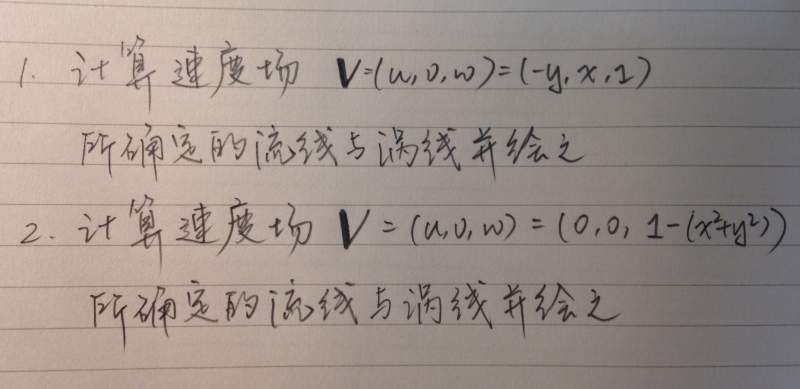 1. 计算速度场 V=(u,υ,w)=(-y,x,1)
所确定的流线与涡线并绘之
2. 计算速度场 V=(u,υ,w)=(0,0,1-(x²+y²))
所确定的流线与涡线并绘之